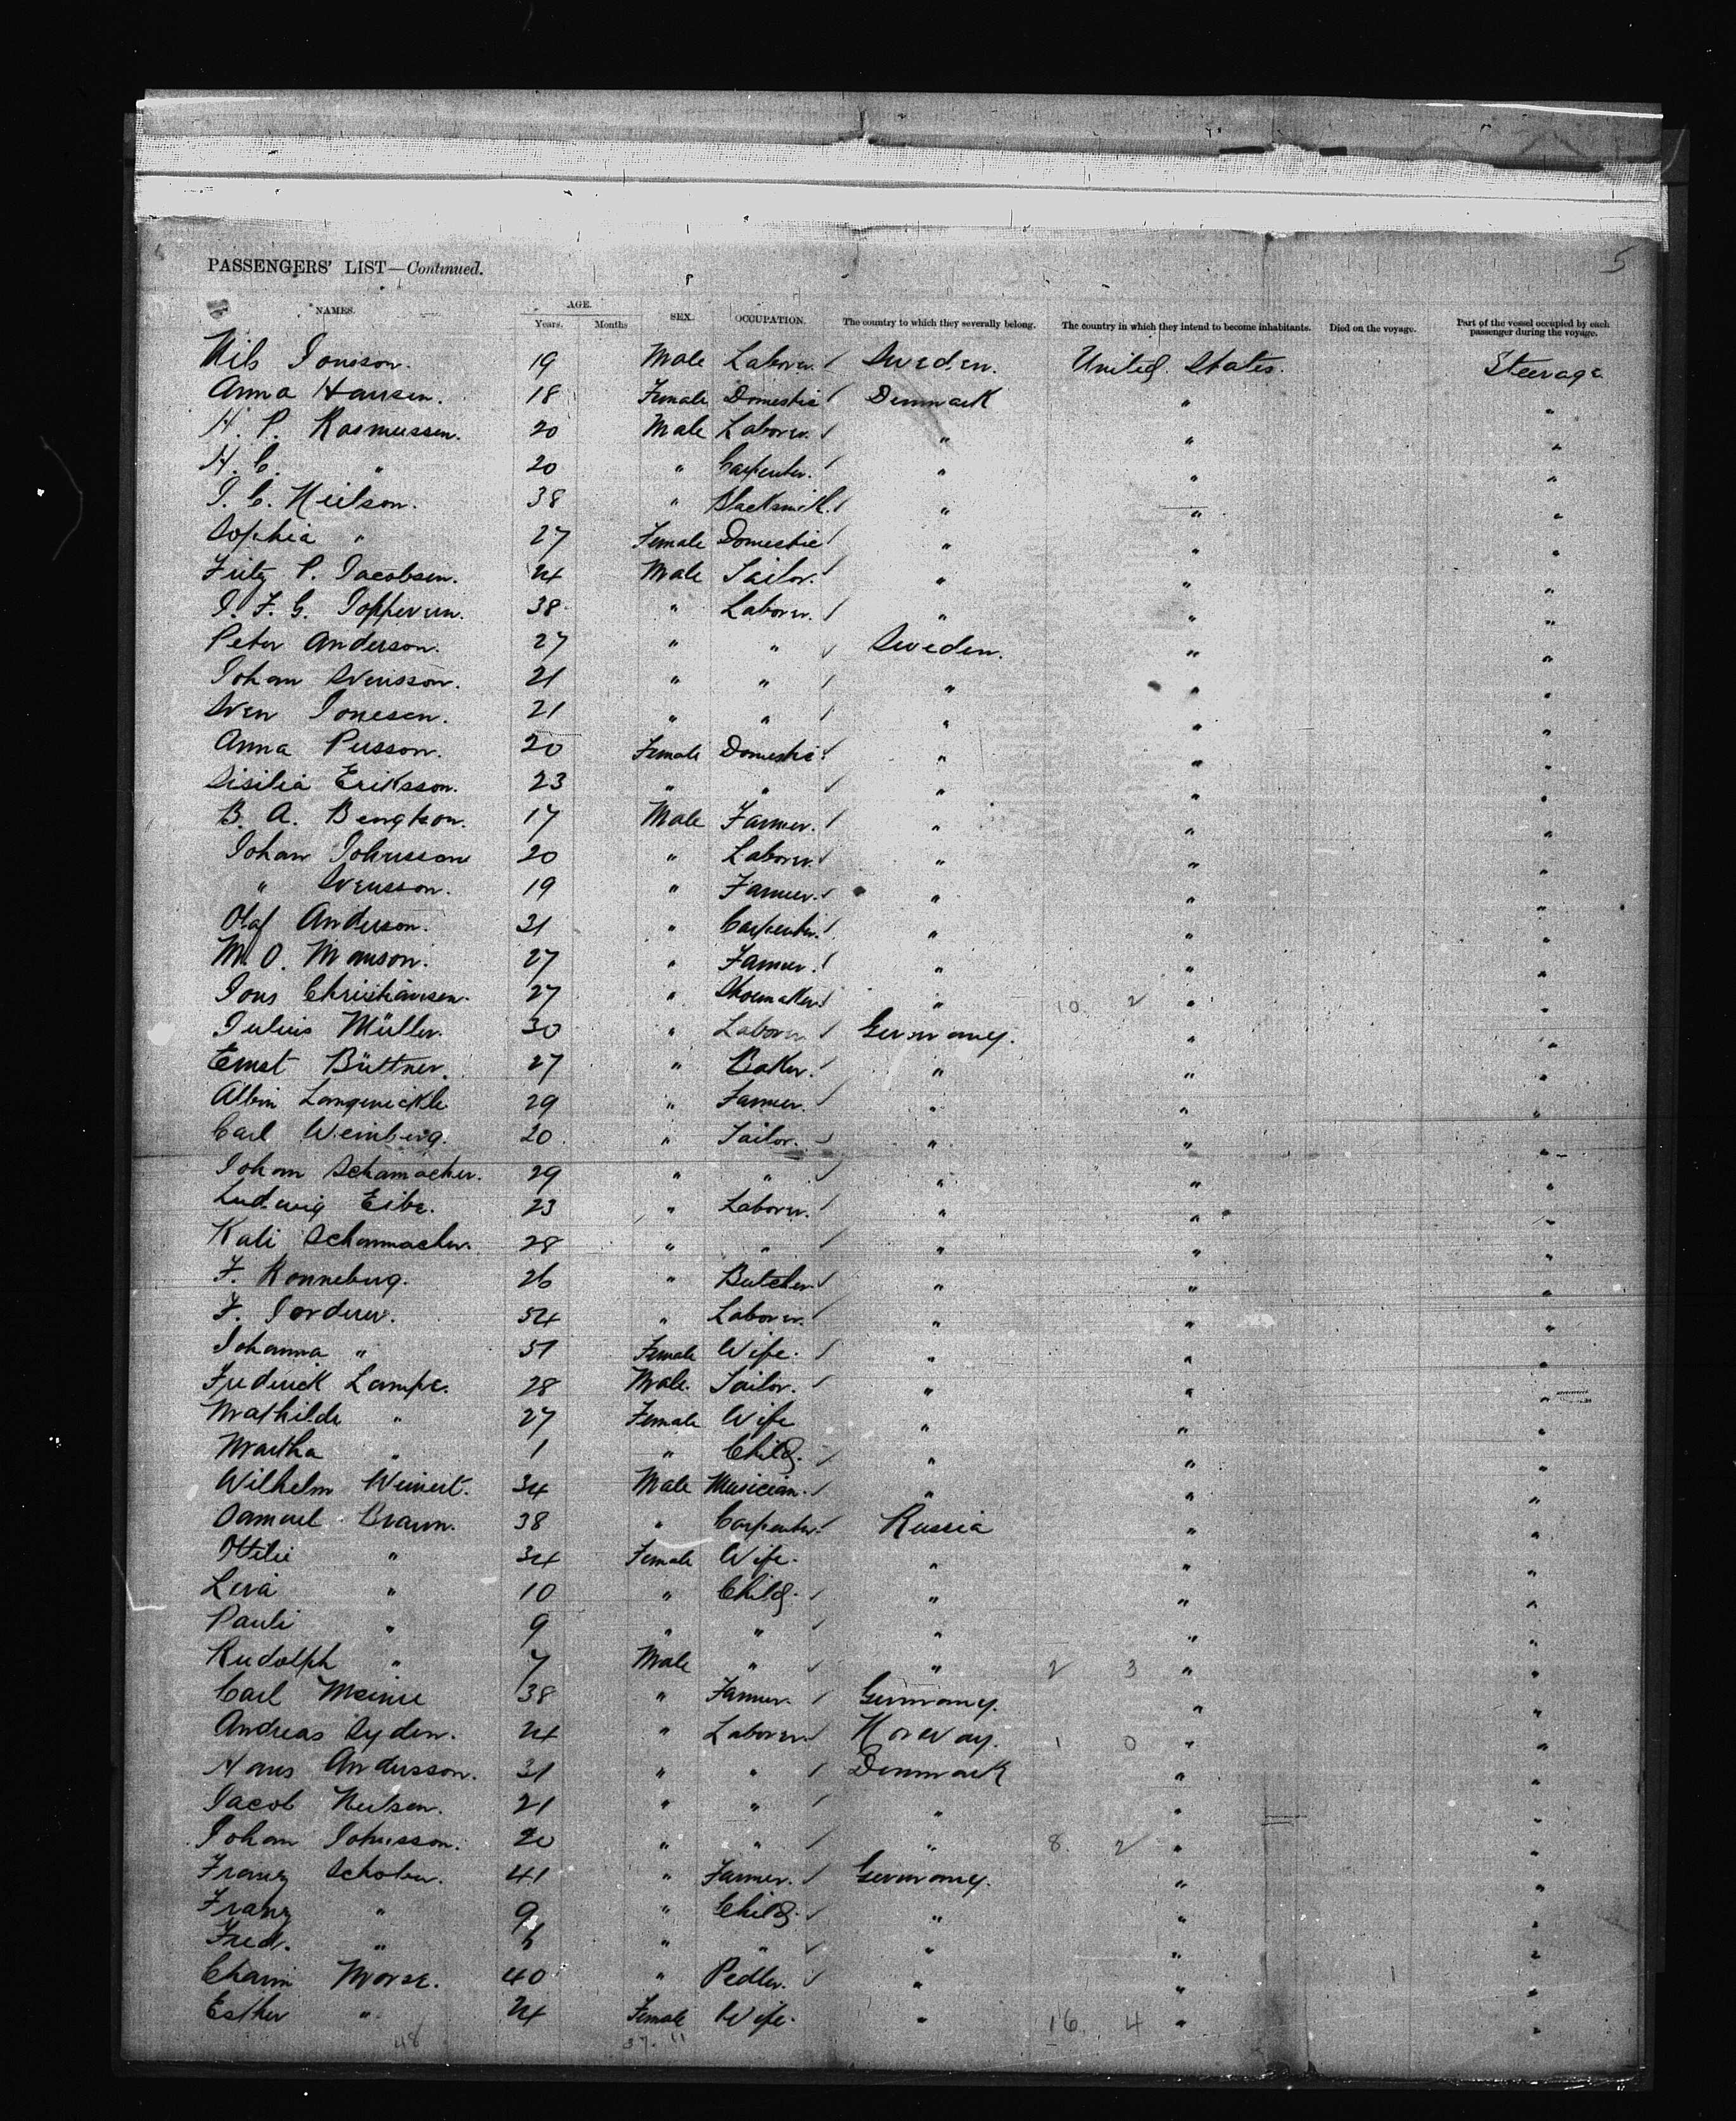 5
PASSENGERS' LIST—Continued.
NAMES. AGE. Years. Months SEX. OCCUPATION. The country to which they severally belong. The country in which they intend to become inhabitants. Died on the voyage. Part of the vessel occupied by each passenger during the voyage.
Nils Jonsson. 19 Male Laborer. / Sweden. United States. Steerage
Anna Hansen. 18 Female Domestic / Denmark " "
H. P. Rasmussen. 20 Male Laborer. / " " "
H. C. " 20 " Carpenter. / " " "
J. C. Neilson. 38 " Blacksmith. / " " "
Sophia " 27 Female Domestic / " " "
Fritz P. Jacobsen. 24 Male Tailor. / " " "
J. F. G. 38 " Laborer. / " " "
Peter Anderson. 27 " " / Sweden. " "
Johan Svensson. 21 " " / " " "
Sven Jonesen. 21 " " / " " "
Anna Persson. 20 Female Domestic / " " "
Sisilia Eriksson. 23 " " / " " "
B. A. Bengtson. 17 Male Farmer. / " " "
Johan Johnsson 20 " Laborer. / " " "
" Svensson. 19 " Farmer. / " " "
Olaf Anderson. 31 " Carpenter. / " " "
M. O. Manson. 27 " Farmer. / " " "
Jons Christiansen. 27 " Shoemaker. / " 10 2 " "
Julius Müller. 30 " Laborer / Germany. " "
Ernst Büttner. 27 " Baker. / " " "
Albin 29 " Farmer. / " " "
Carl Weinberg. 20 " Tailor. / " " "
Johan Schamacher. 29 " " / " " "
Ludwig Eibe. 23 " Laborer. / " " "
Kati Schammacher. 28 " " / " " "
F. Ronneburg. 26 " Butcher / " " "
F. Jorderer. 54 " Laborer. / " " "
Johanna " 51 Female Wife. / " " "
Frederick Lampe. 28 Male. Tailor. / " " "
Mathilde " 27 Female Wife " " "
Martha " 1 " Child. / " " "
Wilhelm Weinert. 34 Male Musician. / " " "
Samuel Braun. 38 " Carpenter. / Russia " "
Ottilie " 34 Female Wife. " " "
Lina " 10 " Child. / " " "
Pauli " 9 " " / " " "
Rudolph " 7 Male " / " 2 3 " "
Carl Meinie 38 " Farmer. / Germany. " "
Andreas Syden. 24 " Laborer / Norway. 1 0 " "
Hans Andersson. 31 " " / Denmark " "
Jacob Neilsen. 21 " " / " " "
Johan Johnsson. 20 " " / " 8 2 " "
Franz Schober. 41 " Farmer. / Germany. " "
Franz " 9 " Child. / " " "
Fred. " " " / " " "
Chaim Morse. 40 " Pedler. / " " "
Esther " 24 Female Wife. " 16 4 " "
48 37. 11